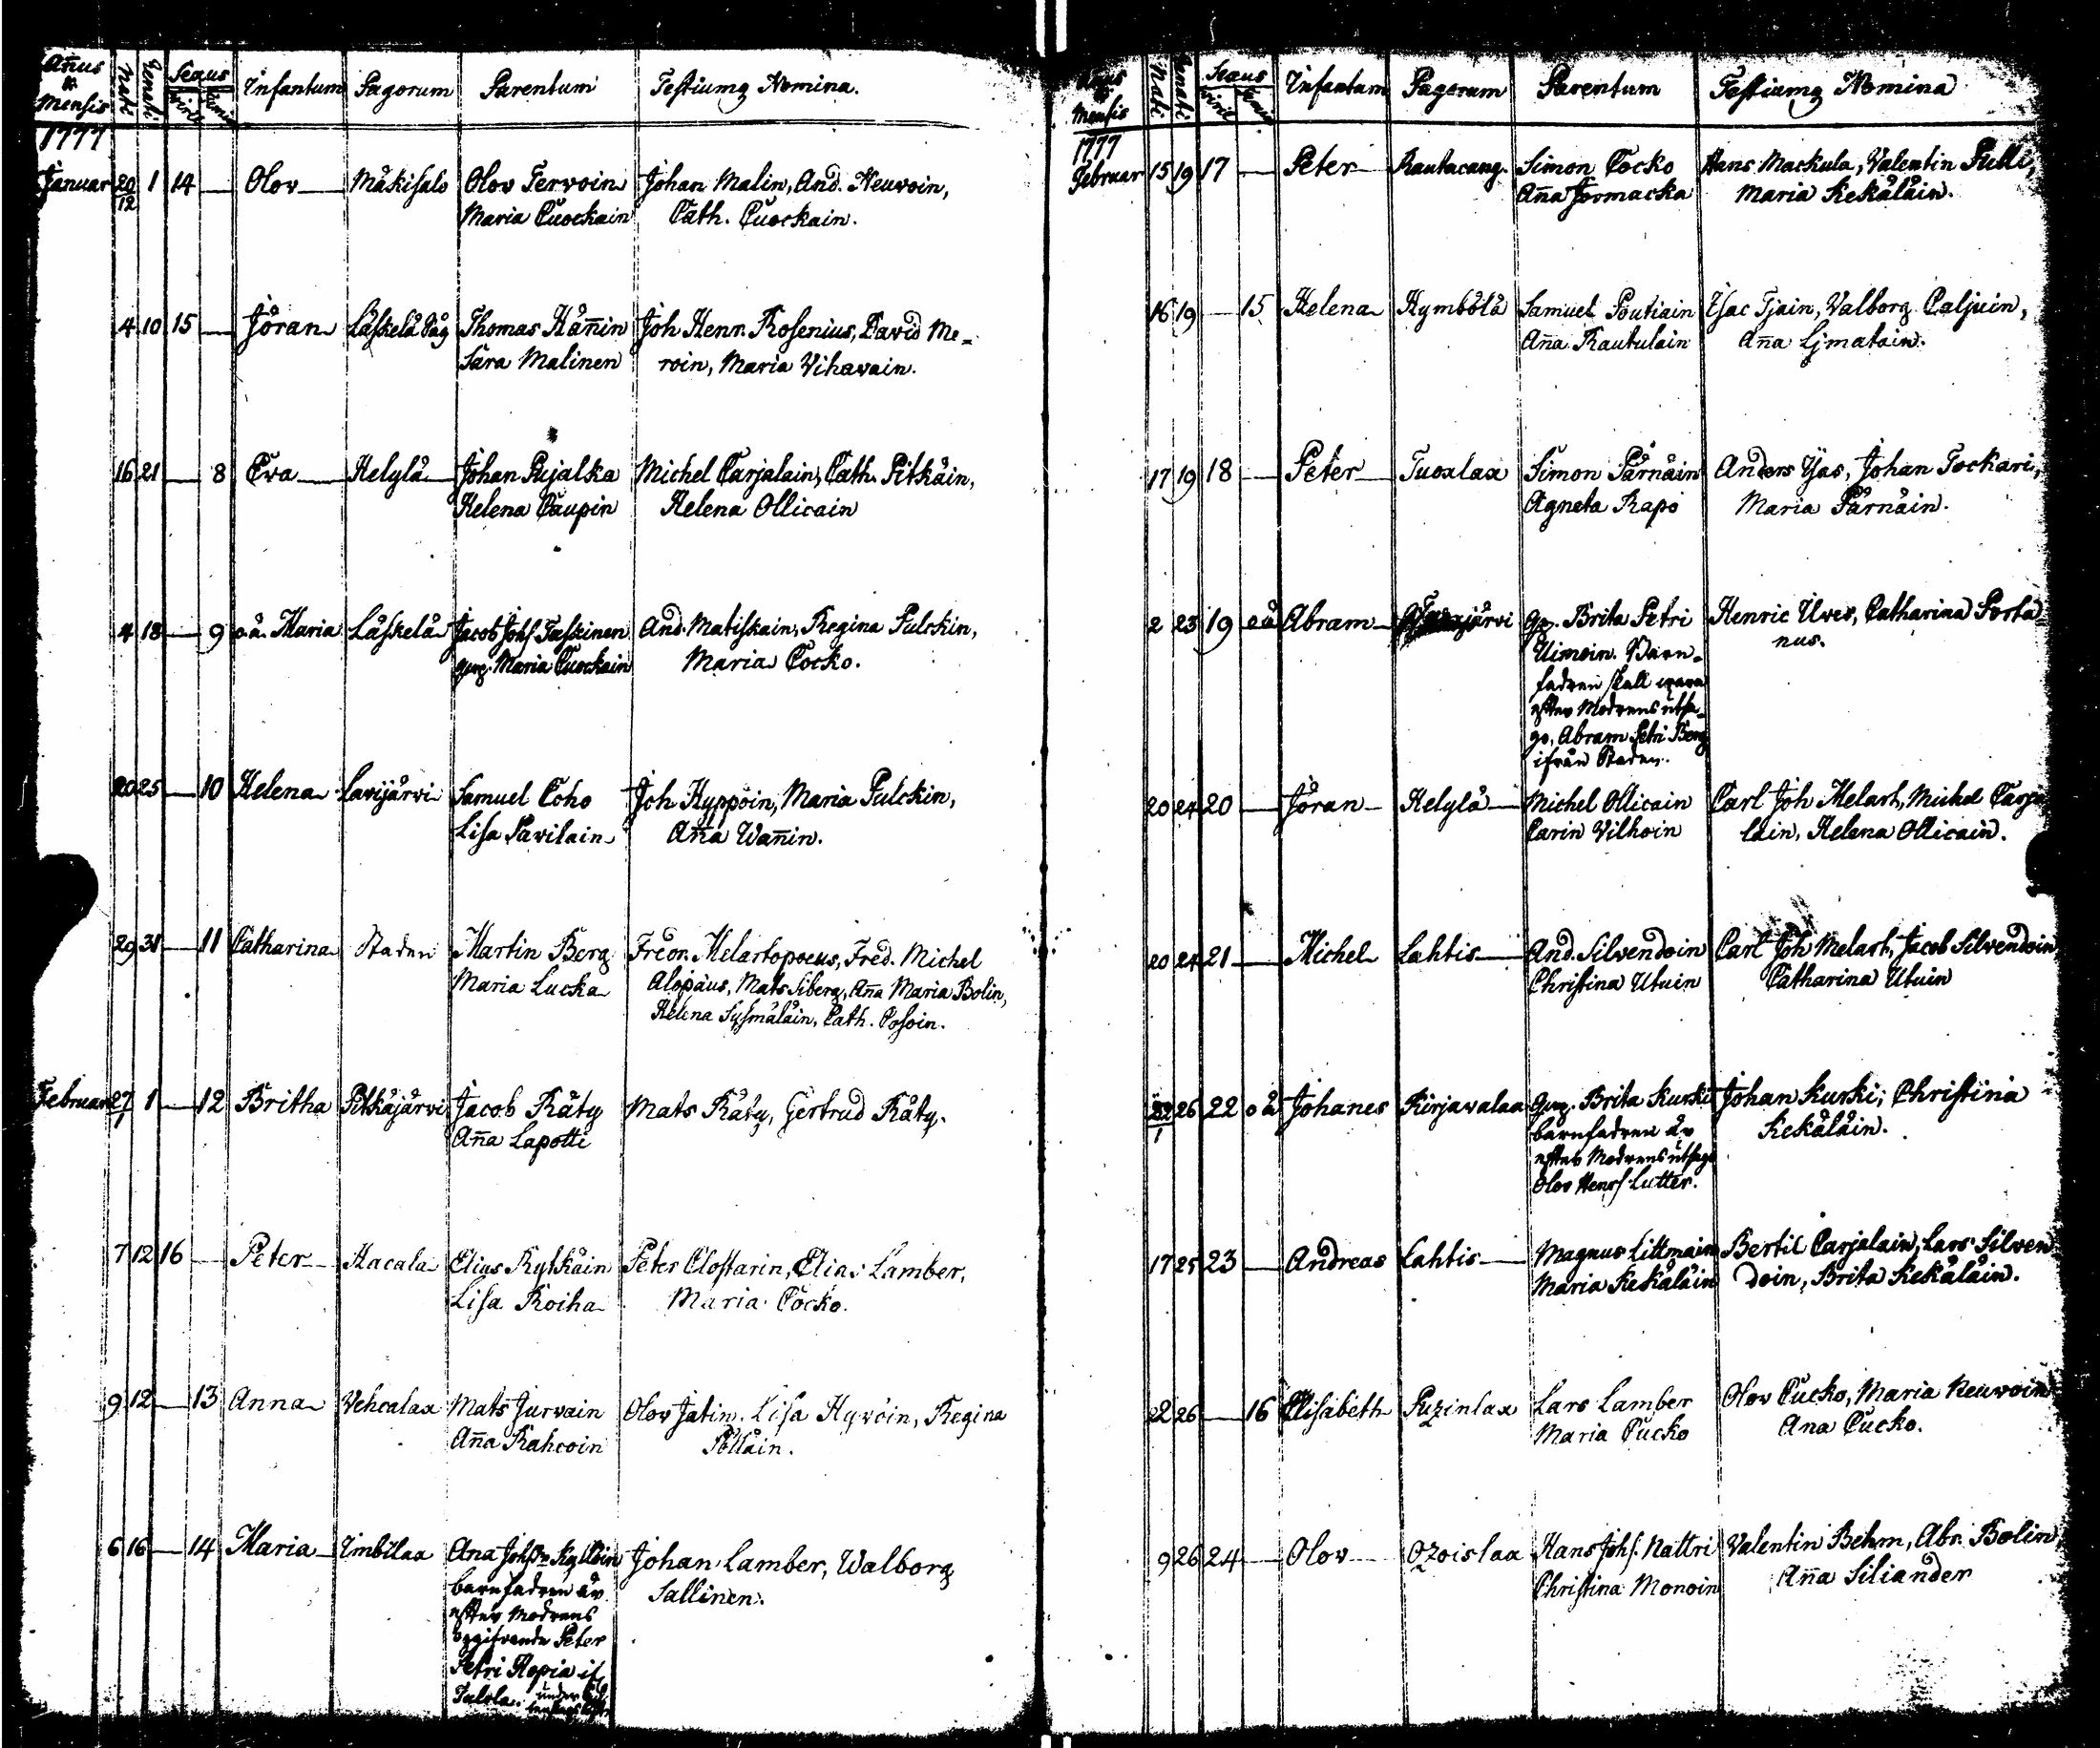 Añus & Mensis Nati Renati Sexus viril Infantum Pagorum Parentum Testiumq Nomina.
1777
Januar 20/12 1 14 — Olov Mäkisalo Olov Tervoin Johan Malin, And. Neuvoin,
Maria Cuockain Cath. Cuockain.
4 10 15 — Jöran Läskelä Såg Thomas Häñin Joh Henr. Rosenius, David Me-
Sara Malinen roin, Maria Vihavain.
16 21 — 8 Eva Helylä Johan Pujalka Michel Carjalain, Cath. Pitkäin,
Helena Caupin Helena Ollicain
4 18 — 9 o.ä. Maria Läskelä Jacob Johs. Taskinen And. Matiskain, Regina Pulckin,
Maria Cuockain Maria Cocko.
20 25 — 10 Helena Lavijärvi Samuel Coho Joh Hyppöin, Maria Pulckin,
Lisa Pavilain Aña Wañin.
29 31 — 11 Catharina Staden Martin Berg Melartopoeus, Fred. Michel
Maria Lucka Alopäus, Mats Siberg, Aña Maria Bolin,
Helena Sysmäläin, Cath. Cosoin.
Februar 27/1 1 — 12 Britha Pitkäjärvi Jacob Räty Mats Räty, Gertrud Räty.
Aña Lapotti
7 12 16 — Peter Hacala Elias Rytkäin Peter Clostarin, Elias Lamber,
Lisa Roiha Maria Cocko.
9 12 — 13 Anna Vehcalax Mats Jurvain Olov Jatin. Lisa Hyvöin, Regina
Aña Rahcoin Pölläin.
6 16 — 14 Maria Imbilax Ana Johan Lamber, Walborg
barnfadren är Sallinen.
efter Modrens
Peter
Petri Ropia
under
Añus & Mensis Nati Renati Sexus viril Infantum Pagorum Parentum Testiumq Nomina
1777
Februar 15 19 17 — Peter Rautacang. Simon Cocko Hans Mackula, Valentin Pulli,
Aña Jormacka Maria Kekäläin.
16 19 — 15 Helena Hymbölä Samuel Poutiain Isac Tjain, Valborg Caljuin,
Aña Rautulain Aña Ljmatain.
17 19 18 — Peter Tuoxlax Simon Pärnäin Anders Ijas, Johan Tockari,
Agneta Rapo Maria Pärnäin.
2 23 19 o.ä Abram Brita Petri Henric Ulves, Catharina Porta
Uimoin. Barn- nus.
fadren skall vara
efter Modrens utsa-
go, Abram Petri Berg
ifrån Staden.
20 24 20 — Jöran Helylä Michel Ollicain Carl Joh Melart, Michel Carja
Carin Vilhoin lain, Helena Ollicain.
20 24 21 — Michel Lahtis And. Silvendoin Carl Joh Melart, Jacob Silvendoin
Christina Utuin Catharina Utuin
26 22 o ä Johanes Kirjavalax Brita Kurki Johan Kurki, Christina
barnfadren är Kekäläin.
efter Modrens utsago
Olov Henrs. Lutter.
17 25 23 — Andreas Lahtis Magnus Littmain Bertil Carjalain, Lars Silven
Maria Kekäläin doin, Brita Kekäläin.
22 26 — 16 Elisabeth Puzinlax Lars Lamber Olov Cucko, Maria Neuvoin
Maria Cucko Ana Cucko.
9 26 24 — Olov Ozoislax Hans Johs. Nattri Valentin Behm, Abr. Bolin,
Christina Monoin Aña Siliander